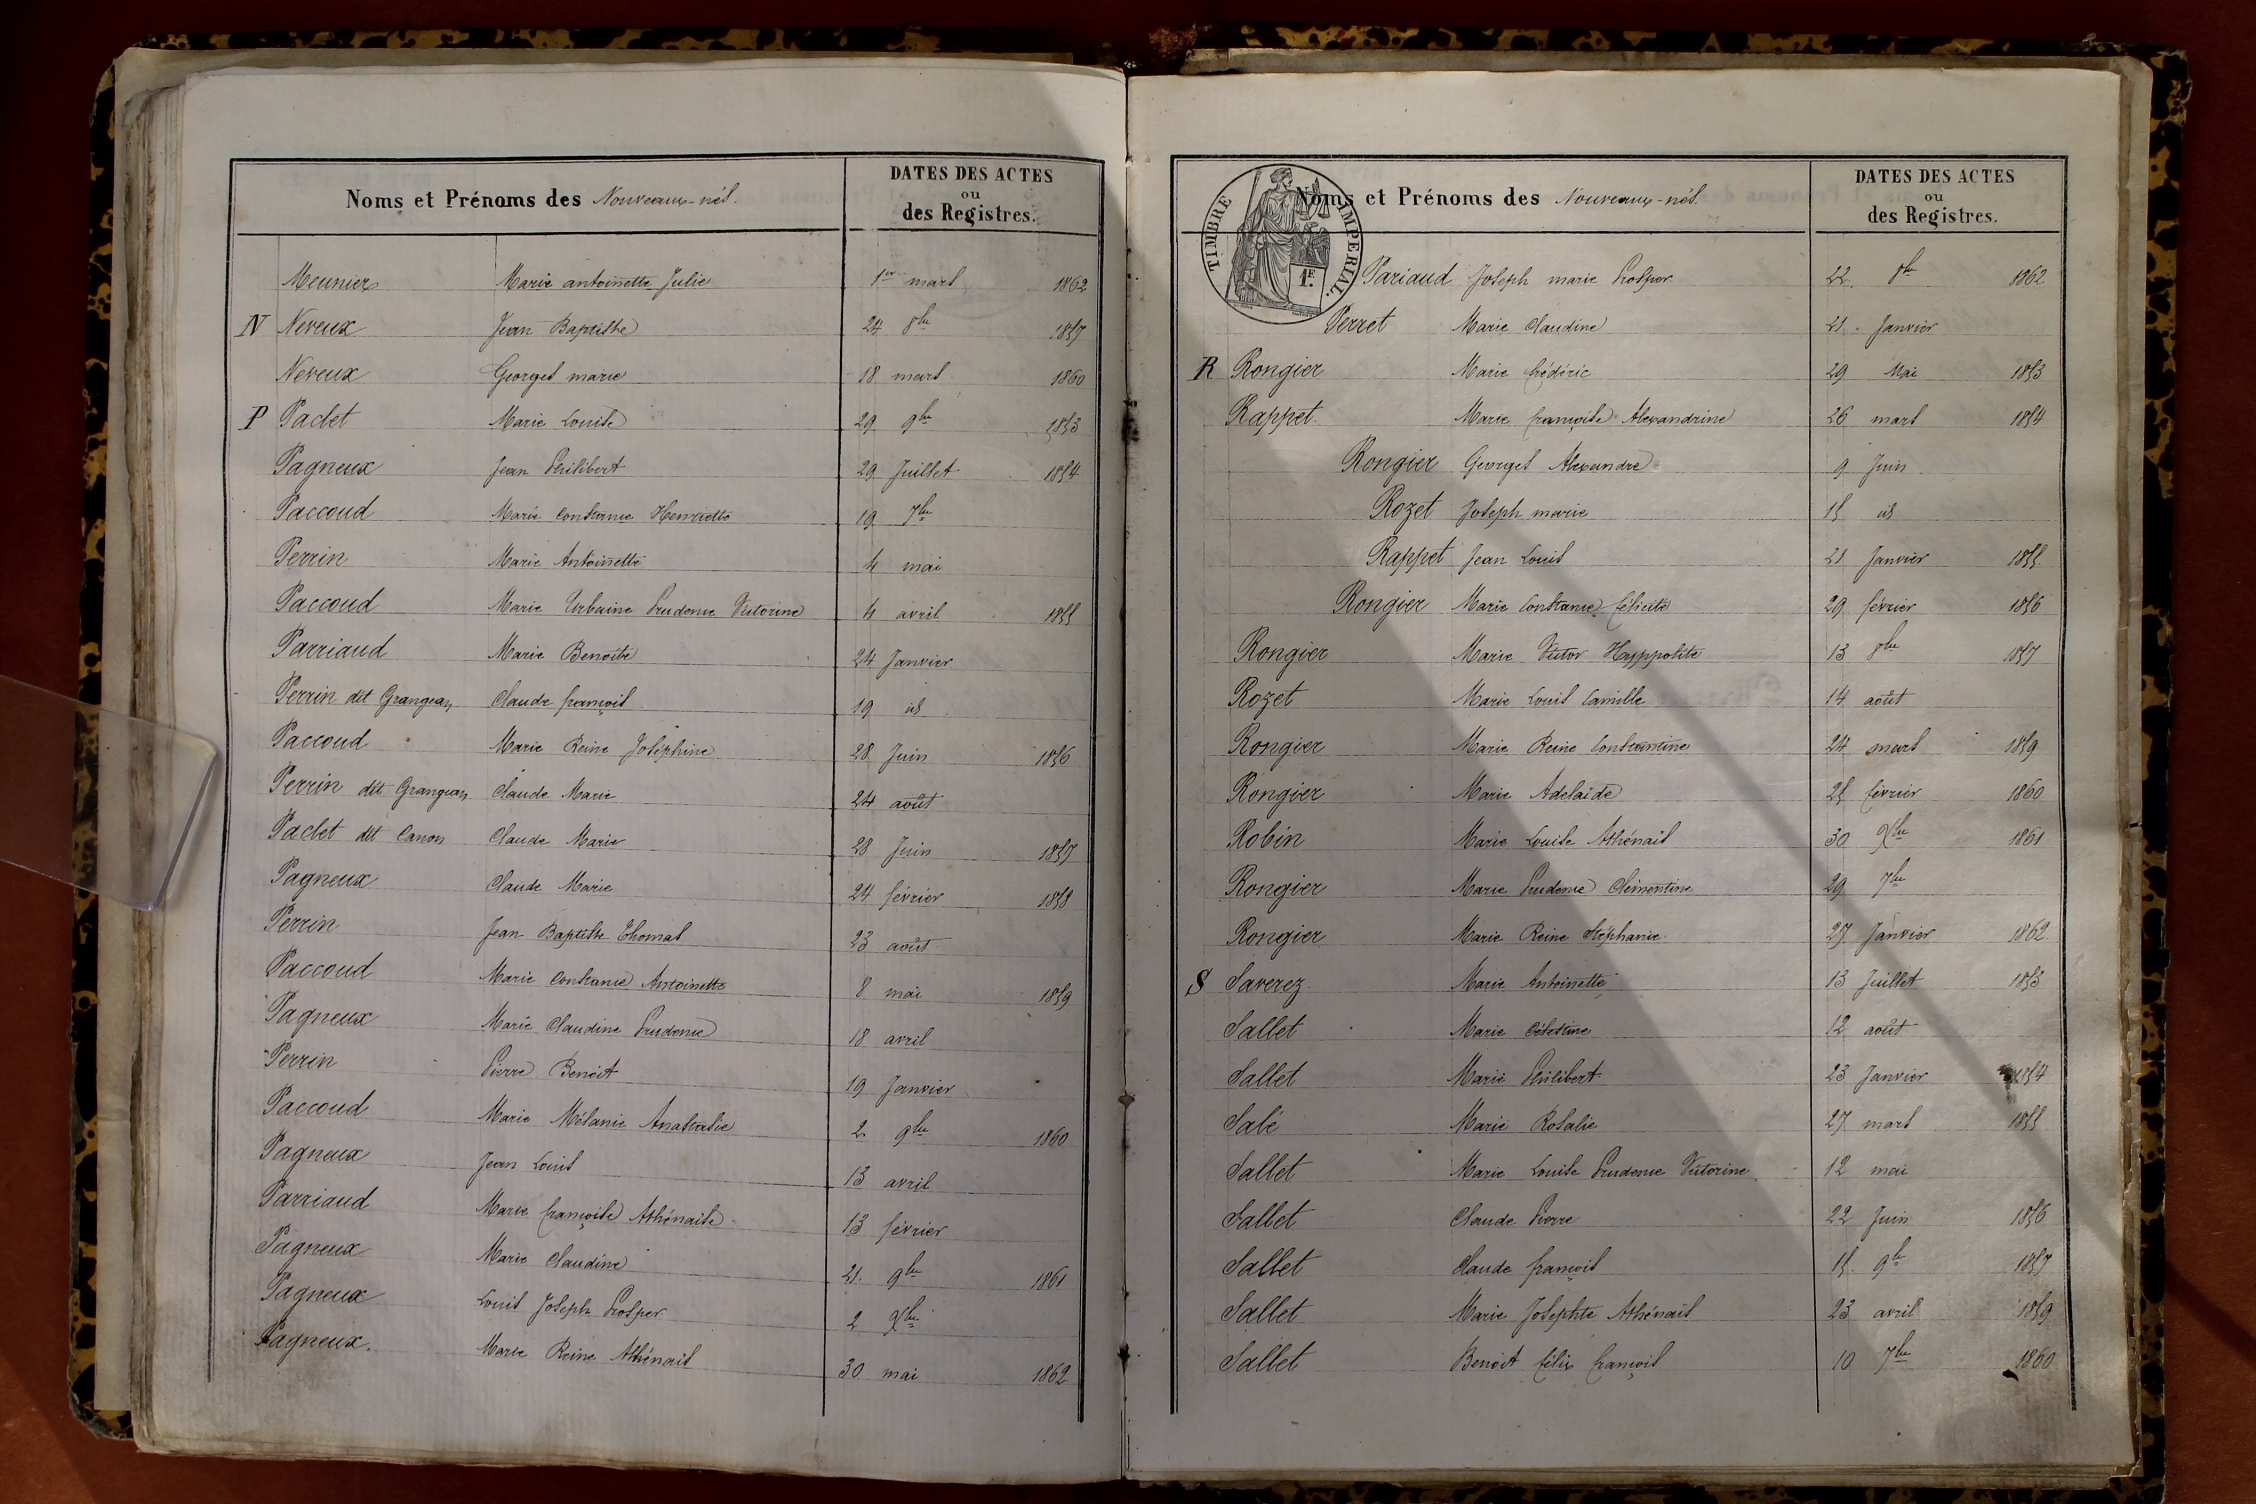 Noms et Prénoms des Nouveaux-nés.
DATES DES ACTES
ou
des Registres.
Meunier Marie antoinette Julie 1er mars 1862
N Neveux Jean Baptiste 24 8bre 1857
Neveux Georges marie 18 mars 1860
P Paclet Marie Louise 29 9bre 1853
Pagneux Jean Philibert 29 Juillet 1854
Paccoud Marie Constance Henriette 19 7bre
Perrin Marie Antoinette 4 mai
Paccoud Marie Urbaine Prudence Victorine 4 avril 1855
Parriaud Marie Benoîte 24 Janvier
Perrin dit Grangean Claude françois 19 id
Paccoud Marie Reine Joséphine 28 Juin 1856
Perrin dit Grangean Claude Marie 24 août
Paclet dit Canon Claude Marie 28 Juin 1857
Pagneux Claude Marie 24 février 1858
Perrin Jean Baptiste Thomas 23 août
Paccoud Marie Constance Antoinette 8 mai 1859
Pagneux Marie Claudine Prudence 18 avril
Perrin Pierre Benoît 19 Janvier
Paccoud Marie Mélanie Anastasie 2 9bre 1860
Pagneux Jean Louis 13 avril
Parriaud Marie françoise Athénaïse 13 février
Pagneux Marie Claudine 21 9bre 1861
Pagneux Louis Joseph Prosper 2 Xbre
Pagneux Marie Reine Athénaïs 30 mai 1862
TIMBRE IMPERIAL.
1.F.
Noms et Prénoms des Nouveaux-nés.
DATES DES ACTES
ou
des Registres.
Pariaud Joseph marie Prosper 22 8bre 1862
Perret Marie Claudine 21 Janvier
R Rongier Marie frédéric 29 Mai 1853
Rappet Marie françoise Alexandrine 26 mars 1854
Rongier Georges Alexandre 9 Juin
Rozet Joseph marie 15 id
Rappet Jean Louis 21 Janvier 1855
Rongier Marie Constance félicité 29 février 1856
Rongier Marie Victor Hyppolite 13 8bre 1857
Rozet Marie Louis Camille 14 août
Rongier Marie Reine Constantine 24 mars 1859
Rongier Marie Adelaïde 25 février 1860
Robin Marie Louise Athénaïs 30 Xbre 1861
Rongier Marie Prudence Clémentine 29 7bre
Rongier Marie Reine Stéphanie 27 Janvier 1862
S Saverez Marie Antoinette 13 Juillet 1853
Sallet Marie Célestine 12 août
Sallet Marie Philibert 23 Janvier 1854
Salé Marie Rosalie 27 mars 1855
Sallet Marie Louise Prudence Victorine 12 mai
Sallet Claude Pierre 22 Juin 1856
Sallet Claude françois 15 9bre 1857
Sallet Marie Josephte Athénaïs 23 avril 1859
Sallet Benoit félix françois 10 7bre 1860